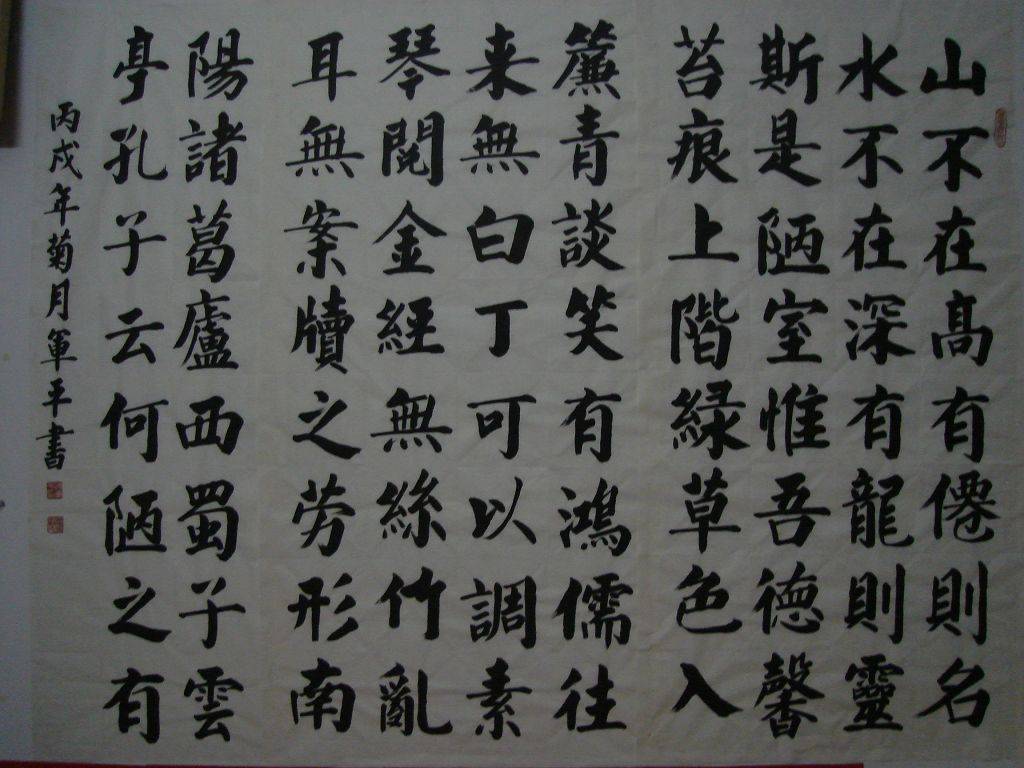 山不在高有僊則名
水不在深有龍則靈
斯是陋室惟吾德馨
苔痕上階緑草色入
簾青談笑有鴻儒往
来無白丁可以調素
琴閱金經無絲竹亂
耳無案牘之劳形南
陽諸葛廬西蜀子雲
亭孔子云何陋之有
丙戌年菊月軍平書